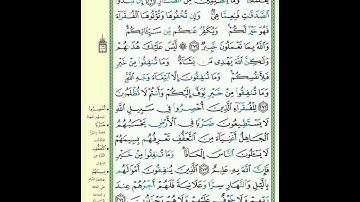 يَعْلَمُهُۥ وَمَا لِلظَّٰلِمِينَ مِنْ أَنصَارٍ ٢٧٠ إِن تُبْدُوا۟
ٱلصَّدَقَٰتِ فَنِعِمَّا هِىَ وَإِن تُخْفُوهَا وَتُؤْتُوهَا ٱلْفُقَرَآءَ
فَهُوَ خَيْرٌ لَّكُمْ وَيُكَفِّرُ عَنكُم مِّن سَيِّـَٔاتِكُمْ
وَٱللَّهُ بِمَا تَعْمَلُونَ خَبِيرٌ ٢٧١ لَّيْسَ عَلَيْكَ هُدَىٰهُمْ
وَلَٰكِنَّ ٱللَّهَ يَهْدِى مَن يَشَآءُ وَمَا تُنفِقُوا۟ مِنْ خَيْرٍ
فَلِأَنفُسِكُمْ وَمَا تُنفِقُونَ إِلَّا ٱبْتِغَآءَ وَجْهِ ٱللَّهِ
وَمَا تُنفِقُوا۟ مِنْ خَيْرٍ يُوَفَّ إِلَيْكُمْ وَأَنتُمْ لَا تُظْلَمُونَ
٢٧٢ لِلْفُقَرَآءِ ٱلَّذِينَ أُحْصِرُوا۟ فِى سَبِيلِ ٱللَّهِ
لَا يَسْتَطِيعُونَ ضَرْبًا فِى ٱلْأَرْضِ يَحْسَبُهُمُ
ٱلْجَاهِلُ أَغْنِيَآءَ مِنَ ٱلتَّعَفُّفِ تَعْرِفُهُم بِسِيمَٰهُمْ
لَا يَسْـَٔلُونَ ٱلنَّاسَ إِلْحَافًا وَمَا تُنفِقُوا۟ مِنْ خَيْرٍ
فَإِنَّ ٱللَّهَ بِهِۦ عَلِيمٌ ٢٧٣ ٱلَّذِينَ يُنفِقُونَ أَمْوَٰلَهُم
بِٱلَّيْلِ وَٱلنَّهَارِ سِرًّا وَعَلَانِيَةً فَلَهُمْ أَجْرُهُمْ عِندَ
رَبِّهِمْ وَلَا خَوْفٌ عَلَيْهِمْ وَلَا هُمْ يَحْزَنُونَ